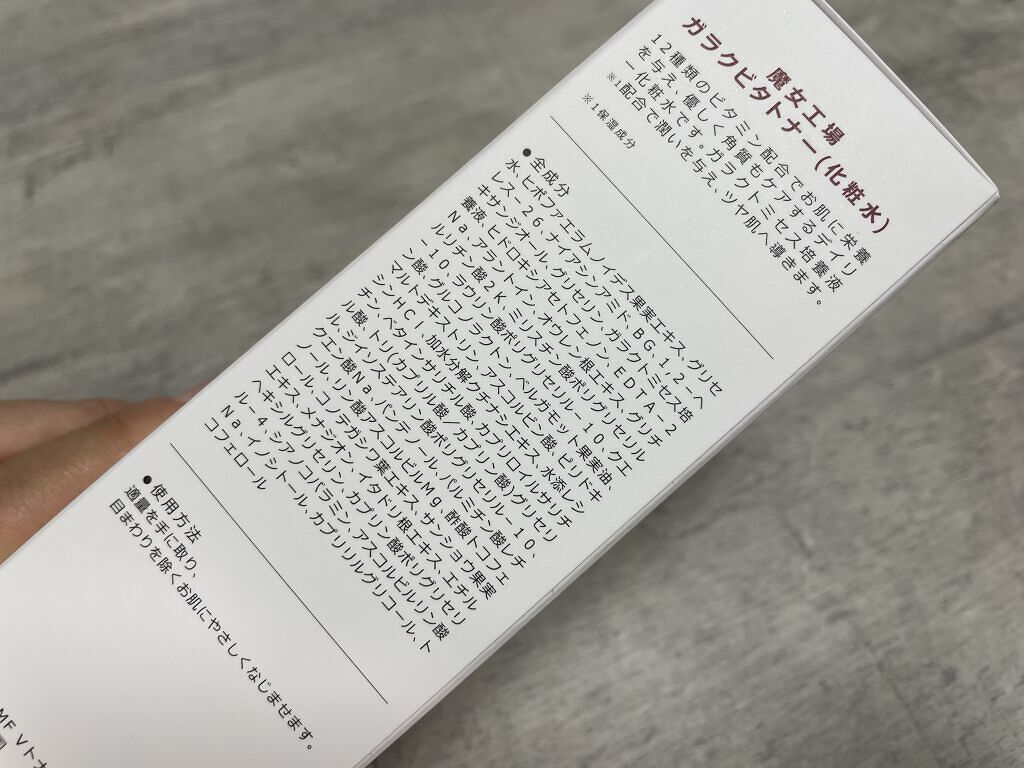 魔女工場
ガラクビタトナー(化粧水)
12種類のビタミン配合でお肌に栄養
を与え、優しく角質もケアするデイリ
ー化粧水です。ガラクトミセス培養液
※1配合で潤いを与え、ツヤ肌へ導きます。
※1保湿成分
●全成分
水、ヒポファエラムノイデス果実エキス、グリセ
レス-26、ナイアシンアミド、BG、1,2-ヘ
キサンジオール、グリセリン、ガラクトミセス培
養液、ヒドロキシアセトフェノン、EDTA-2
Na、アラントイン、オウレン根エキス、グリチ
ルリチン酸2K、ミリスチン酸ポリグリセリル
-10、ラウリン酸ポリグリセリル-10、クエ
ン酸、グルコノラクトン、ベルガモット果実油、
マルトデキストリン、アスコルビン酸、ピリドキ
シンHCl、加水分解クチナシエキス、水添レシ
チン、ベタインサリチル酸、カプリロイルサリチ
ル酸、トリ(カプリル酸/カプリン酸)グリセリ
ル、ジイソステアリン酸ポリグリセリル-10、
クエン酸Na、パンテノール、パルミチン酸レチ
ノール、リン酸アスコルビルMg、酢酸トコフェ
ロール、コノテガシワ葉エキス、サンショウ果実
エキス、メナジオン、イタドリ根エキス、エチル
ヘキシルグリセリン、カプリン酸ポリグリセリ
ル-4、シアノコバラミン、アスコルビルリン酸
Na、イノシトール、カプリリルグリコール、ト
コフェロール
●使用方法
適量を手に取り、
目まわりを除くお肌にやさしくなじませます。
ME Vトナ